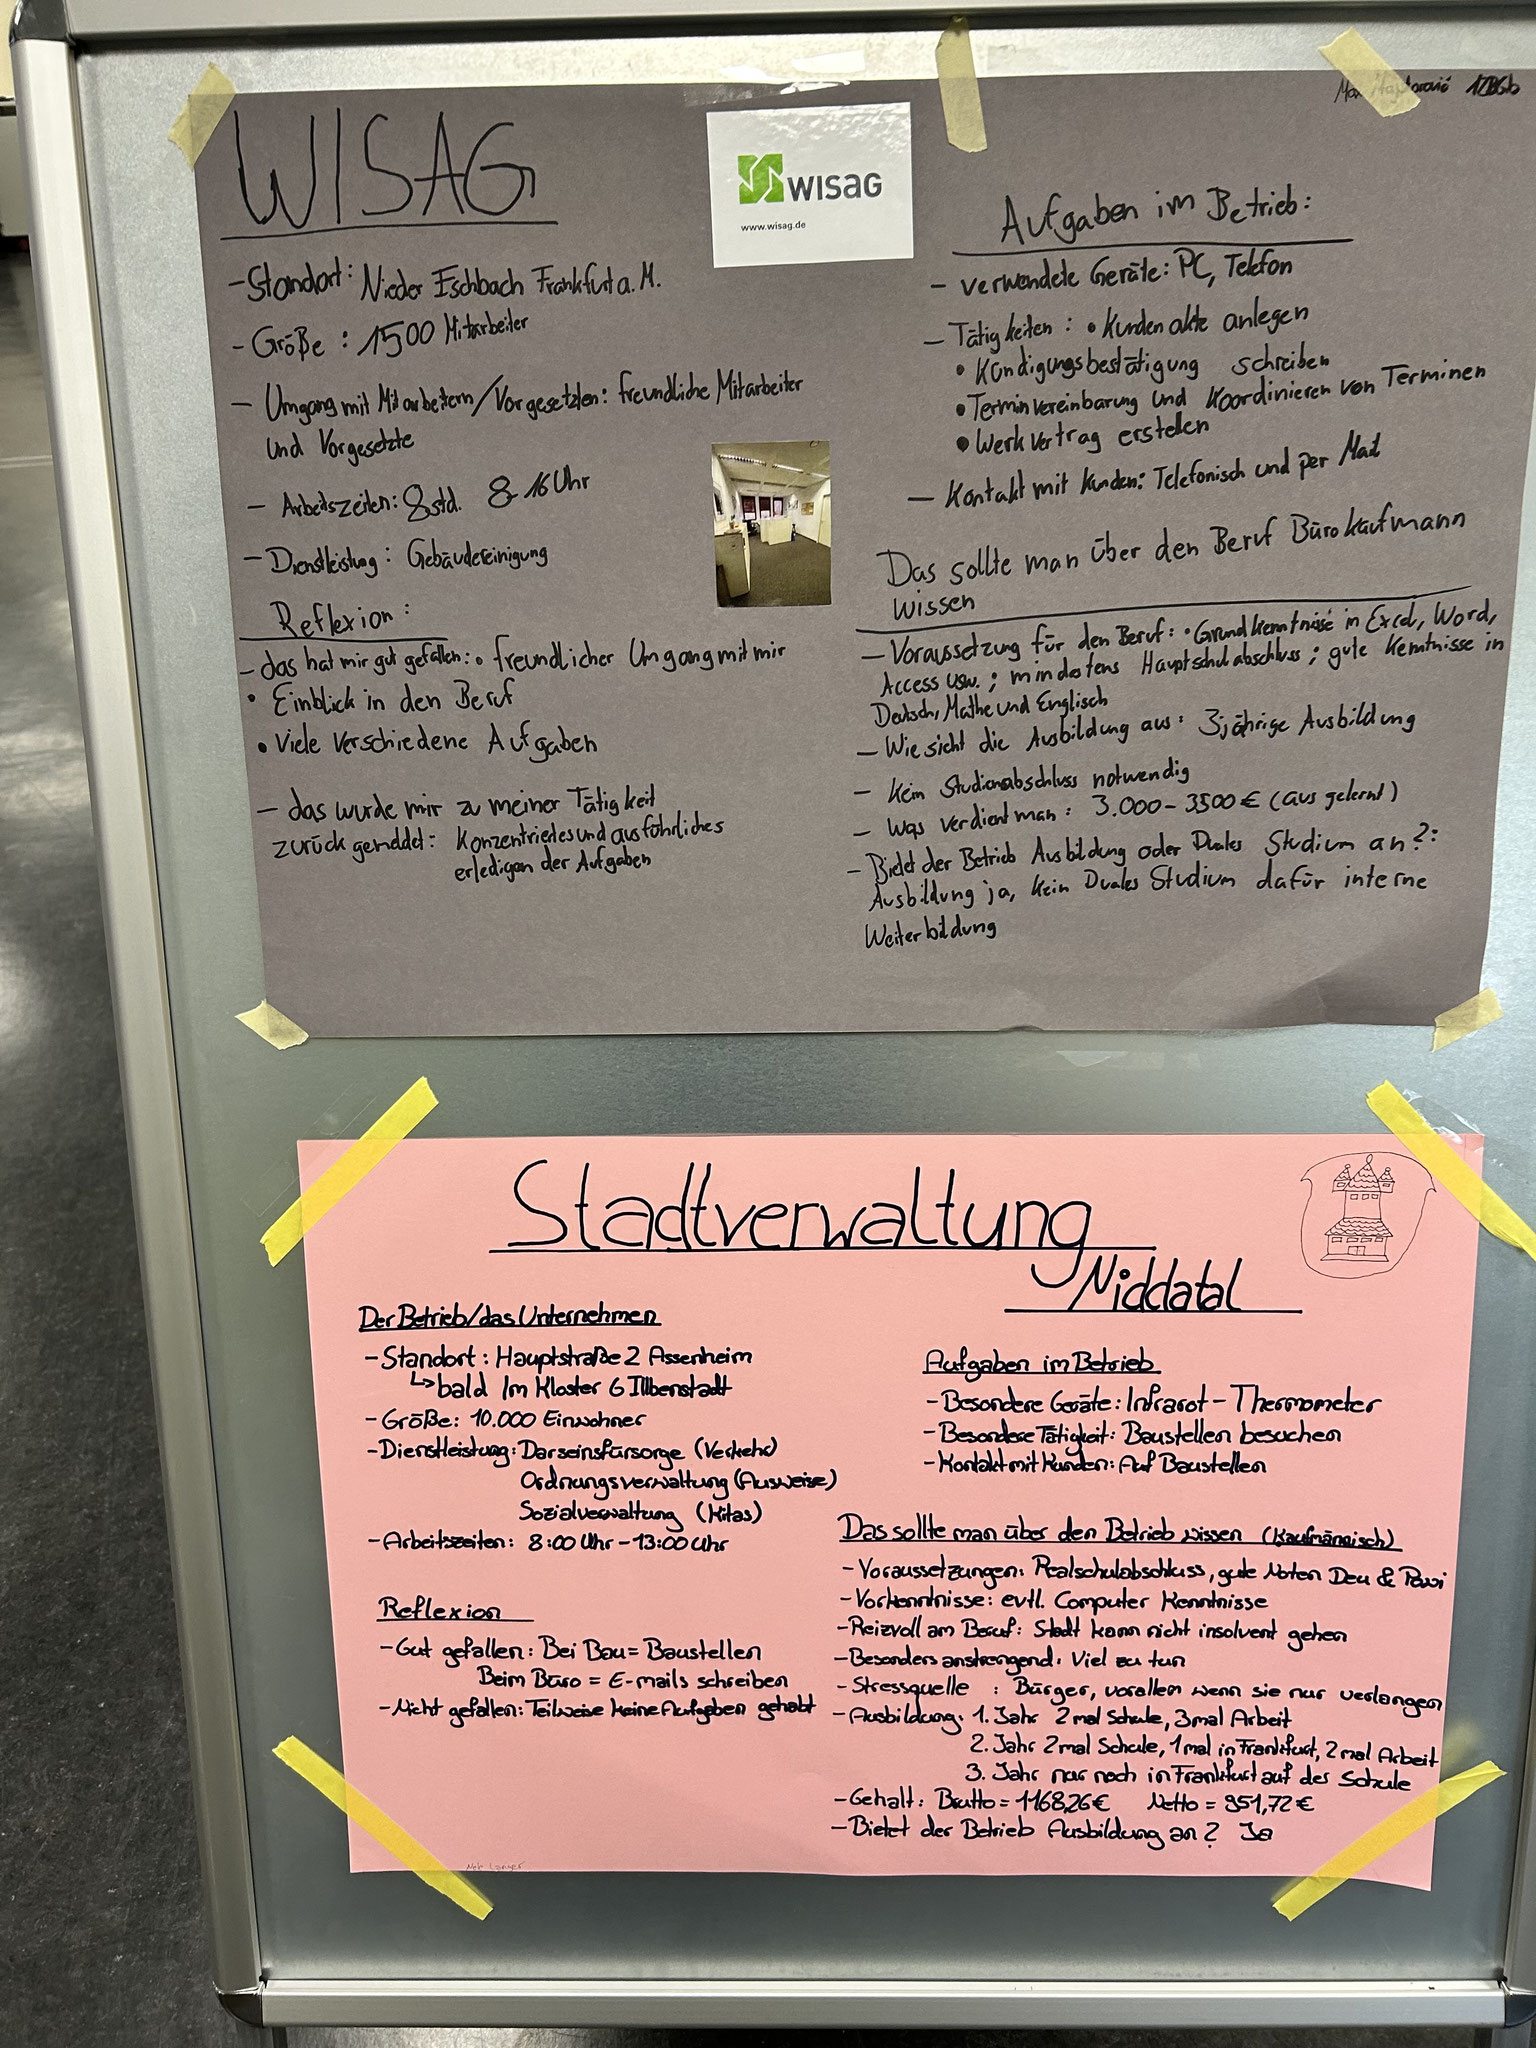 WISAG
- Standort: Nieder Eschbach Frankfurt a. M.
- Größe: 1500 Mitarbeiter
- Umgang mit Mitarbeitern/Vorgesetzten: freundliche Mitarbeiter
und Vorgesetzte
- Arbeitszeiten: 8 std. 8-16 Uhr
- Dienstleistung: Gebäudereinigung
Reflexion:
- das hat mir gut gefallen: • freundlicher Umgang mit mir
• Einblick in den Beruf
• Viele verschiedene Aufgaben
- das wurde mir zu meiner Tätigkeit
zurück gemeldet: Konzentriertes und ausführliches
erledigen der Aufgaben
WISAG
www.wisag.de
Aufgaben im Betrieb:
- verwendete Geräte: PC, Telefon
- Tätigkeiten: • Kundenakte anlegen
• Kündigungsbestätigung schreiben
• Terminvereinbarung und Koordinieren von Terminen
• Werkvertrag erstellen
- Kontakt mit Kunden: Telefonisch und per Mail
Das sollte man über den Beruf Bürokaufmann
wissen
- Voraussetzung für den Beruf: • Grundkenntnisse in Excel, Word,
Access usw.; mindestens Hauptschulabschluss; gute Kenntnisse in
Deutsch, Mathe und Englisch
- Wie sieht die Ausbildung aus: 3jährige Ausbildung
- Kein Studienabschluss notwendig
- Was verdient man: 3.000-3500€ (aus gelernt)
- Bietet der Betrieb Ausbildung oder Duales Studium an?:
Ausbildung ja, kein Duales Studium dafür interne
Weiterbildung
Stadtverwaltung
Niddatal
Der Betrieb/das Unternehmen
- Standort: Hauptstraße 2 Assenheim
↳ bald Im Kloster 6 Illbenstadt
- Größe: 10.000 Einwohner
- Dienstleistung: Darseinsfürsorge (Verkehr)
Ordnungsverwaltung (Ausweise)
Sozialverwaltung (Kitas)
- Arbeitszeiten: 8:00 Uhr - 13:00 Uhr
Reflexion
- Gut gefallen: Bei Bau = Baustellen
Beim Büro = E-mails schreiben
- Nicht gefallen: Teilweise keine Aufgaben gehabt
Aufgaben im Betrieb
- Besondere Geräte: Infrarot - Thermometer
- Besondere Tätigkeit: Baustellen besuchen
- Kontakt mit Kunden: Auf Baustellen
Das sollte man über den Betrieb wissen (Kaufmännisch)
- Voraussetzungen: Realschulabschluss, gute Noten Deu & Powi
- Vorkenntnisse: evtl. Computer Kenntnisse
- Reizvoll am Beruf: Stadt kann nicht insolvent gehen
- Besonders anstrengend: Viel zu tun
- Stressquelle : Bürger, vorallem wenn sie nur verlangen
- Ausbildung: 1. Jahr 2 mal Schule, 3mal Arbeit
2. Jahr 2 mal Schule, 1 mal in Frankfurt, 2 mal Arbeit
3. Jahr nur noch in Frankfurt auf der Schule
- Gehalt: Brutto = 1168,26€ Netto = 951,72€
- Bietet der Betrieb Ausbildung an? Ja